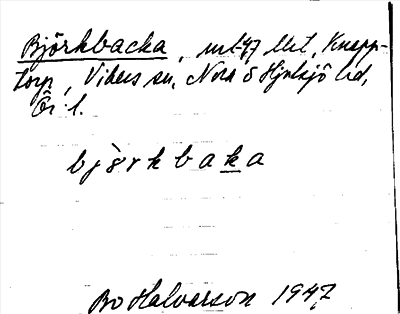 Björkbacka, mt47 lht, Knapp-
torp, Vikers sn, Nora o Hjulsjö hd,
Ör l.
björkbaka
Bo Halvarson 1947